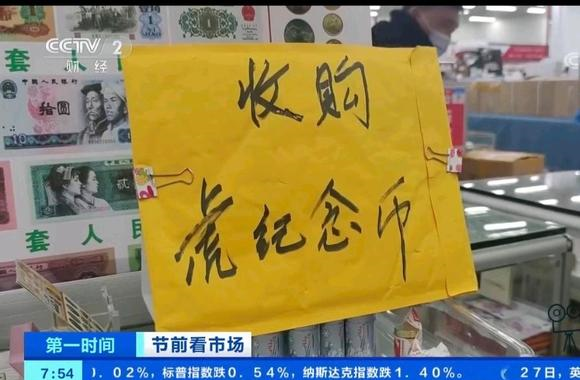 CCTV 2
财经
中国人民银行
拾圆
贰
套人民
套人民
收购
虎纪念币
第一时间
节前看市场
7:54
0.02%，标普指数跌0.54%，纳斯达克指数跌1.40%。
27日，英